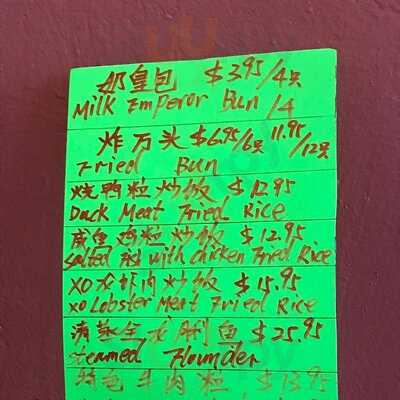 奶皇包 $3.95/4只
Milk Emperor Bun /4
炸万头 $6.95/6只 11.95/12只
Fried Bun
烧鸭粒炒饭 $12.95
Duck Meat Fried Rice
咸鱼鸡粒炒饭 $12.95
Salted Fish with chicken Fried Rice
XO龙虾肉炒饭 $15.95
XO Lobster Meat Fried Rice
清蒸全龙脷鱼 $25.95
steamed Flounder
特色牛肉粒 $18.95